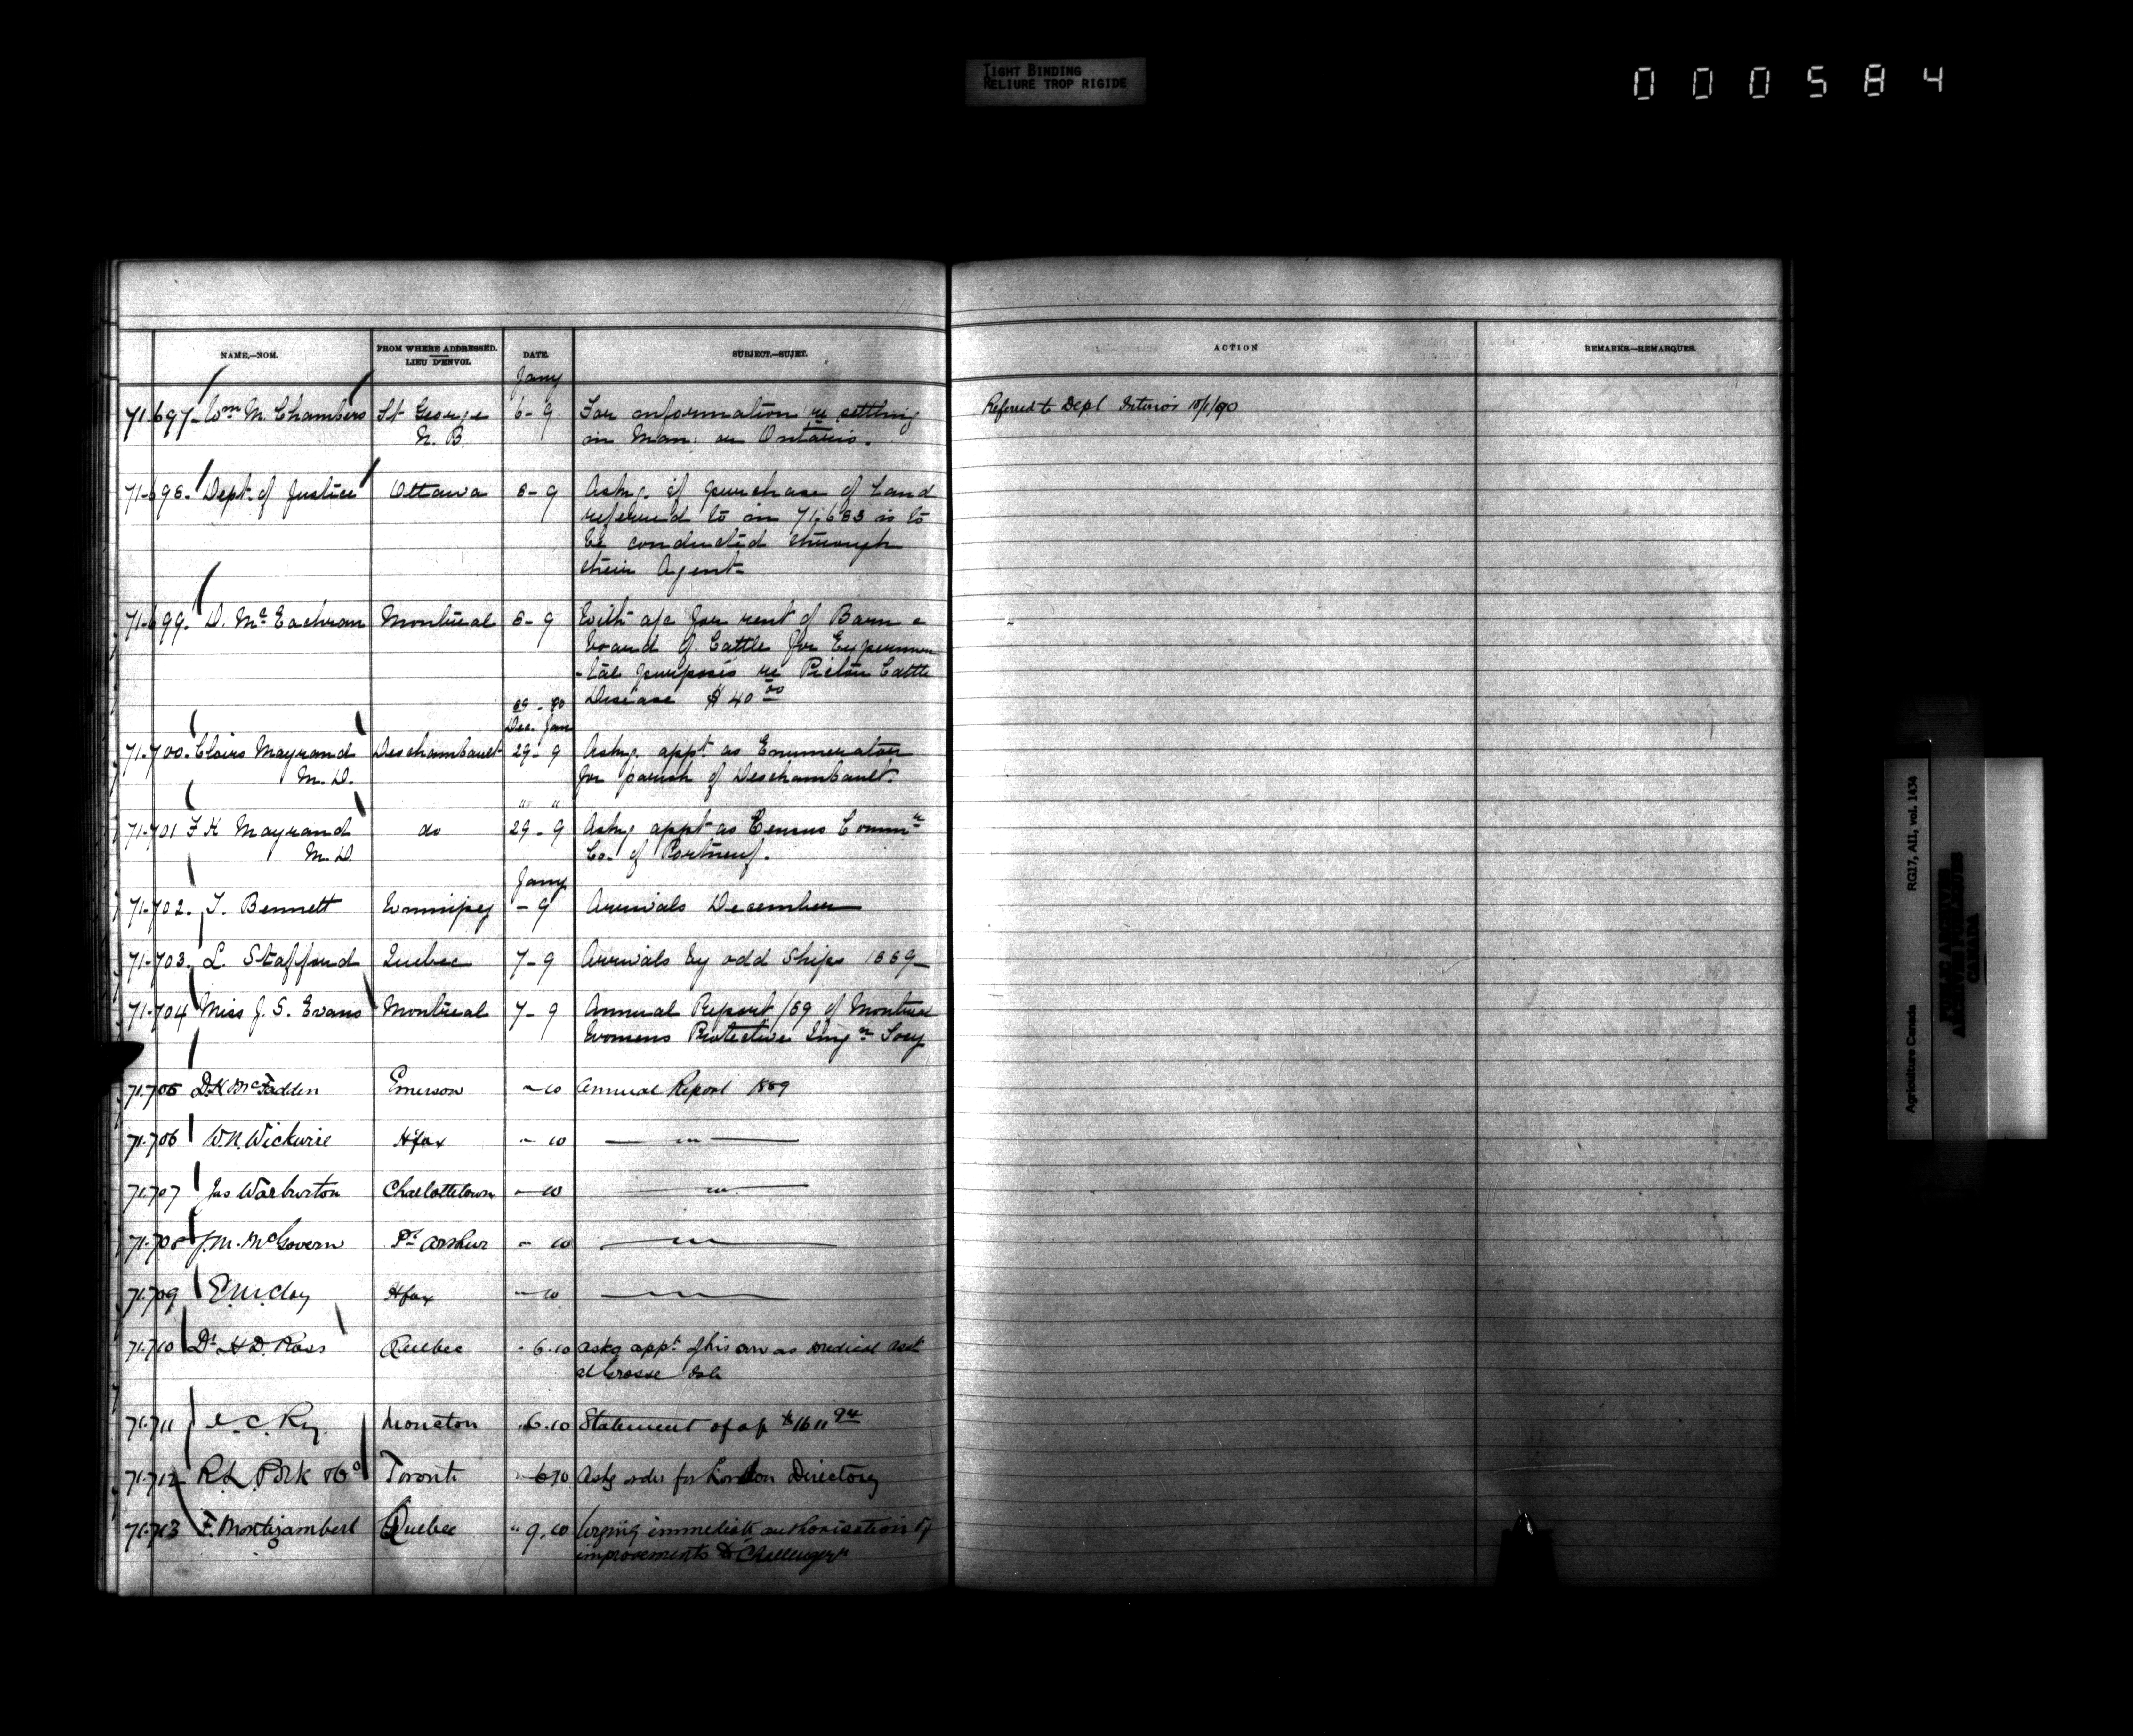 TIGHT BINDING
RELIURE TROP RIGIDE
000584
NAME.—NOM.
FROM WHERE ADDRESSED.
LIEU D'ENVOI.
DATE.
SUBJECT.—SUJET.
ACTION
REMARKS.—REMARQUES.
Jany
71-697- Wm M. Chambers St George 6-9 For information re settling Referred to Dept Interior 10/1/90
N. B. in Man: or Ontario.
71-698- Dept. of Justice Ottawa 8-9 Askg. if purchase of Land
referred to in 71-683 is to
be conducted through
their Agent-
71-699. D. Mc Eachran Montreal 8-9 With a/c for rent of Barn &
board of Cattle for Experimen
-tal purposes re Pictou Cattle
89-90 Disease $40 00
Dec. Jan
71-700. Clairs Mayrand Deschambault 29-9 Askg. appt as Enumerator
M.D. for parish of Deschambault.
" "
71-701 F H Mayrand do 29-9 Askg appt as Census Commr
M.D. Co. of Portneuf.
Jany
71-702. T. Bennett Winnipeg -9 Arrivals December
71-703. L. Stafford Quebec 7-9 Arrivals by odd Ships 1889-
71-704 Miss J. S. Evans Montreal 7-9 Annual Report /89 of Montreal
Womens Protective Imgn Socy
71.705 D.H McFadden Emerson " 10 Annual Report 1889
71.706 W.N. Wickwire Hfax " 10 — " —
71.707 Jas Warburton Charlottetown " 10 — " —
71.708 J.M. McGovern Pt Arthur " 10 — " —
71.709 E. McClay Hfax " 10 — " —
71.710 Dr H D. Ross Quebec " 6.10 askg appt of his son as medical asst
at Grosse Isle
71.711 I. C. Ry. Moncton " 6.10 Statement of a/c $16 11 94
71.712 R.L. Polk & Co Toronto " 6 10 Askg order for London Directory
71.713 F. Montizambert Quebec " 9.10 Urging immediate authorisation of
improvements to "Challenger"
RG17, AII, vol. 1434
Agriculture Canada
PUBLIC ARCHIVES
ARCHIVES PUBLIQUES
CANADA